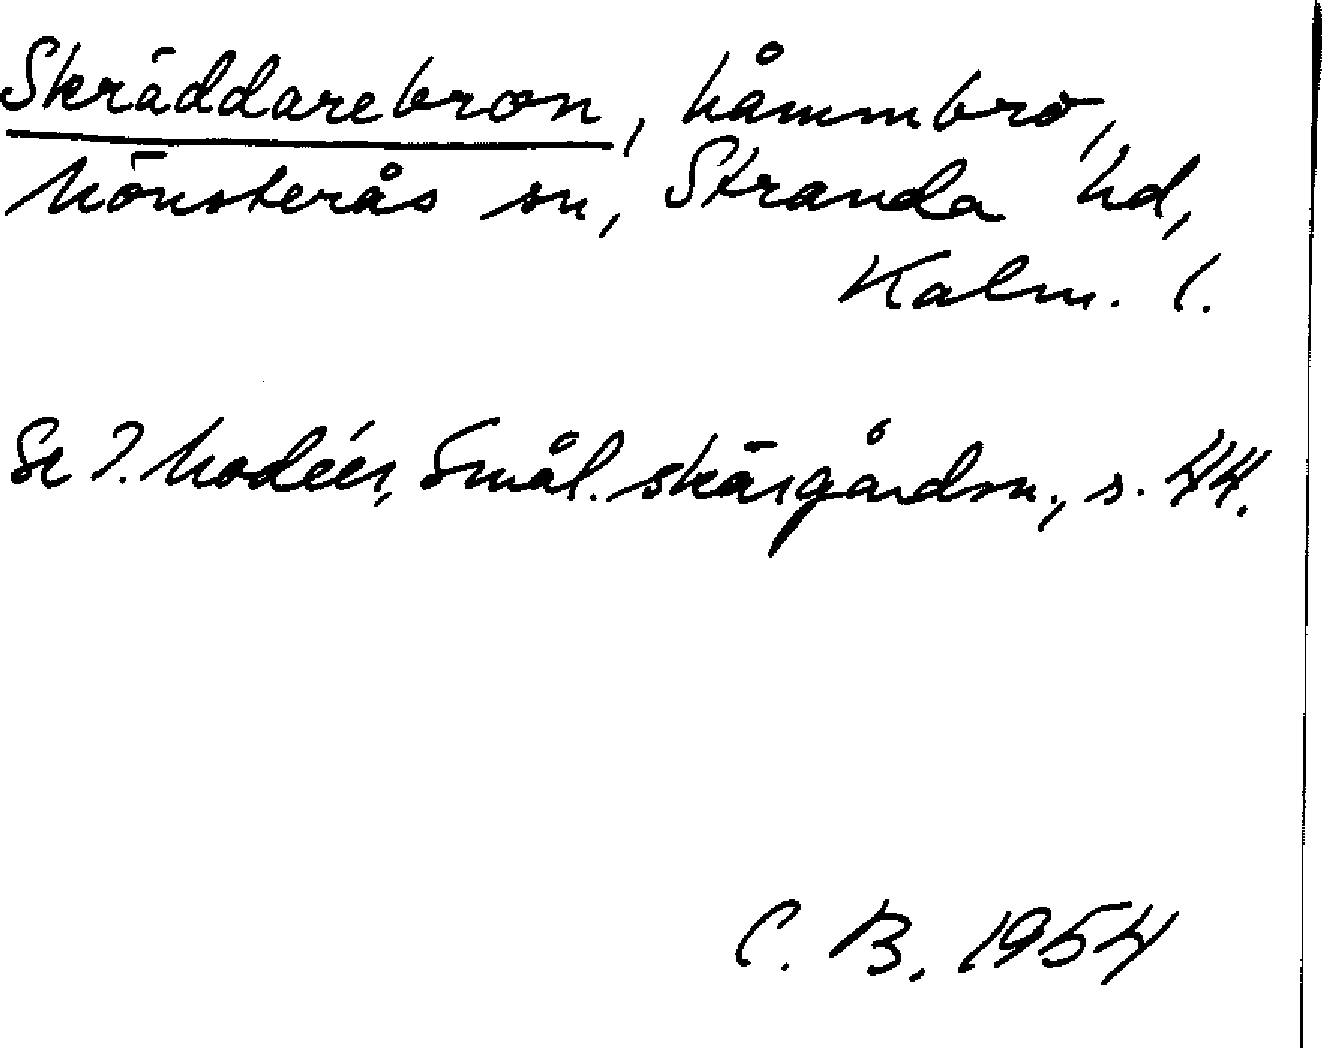 Skräddarebron, håmmbro,
Mönsterås sn, Stranda hd,
Kalm. l.
Se I. Modéer, Smål. skärgårdsn., s. 44.
C. B. 1954